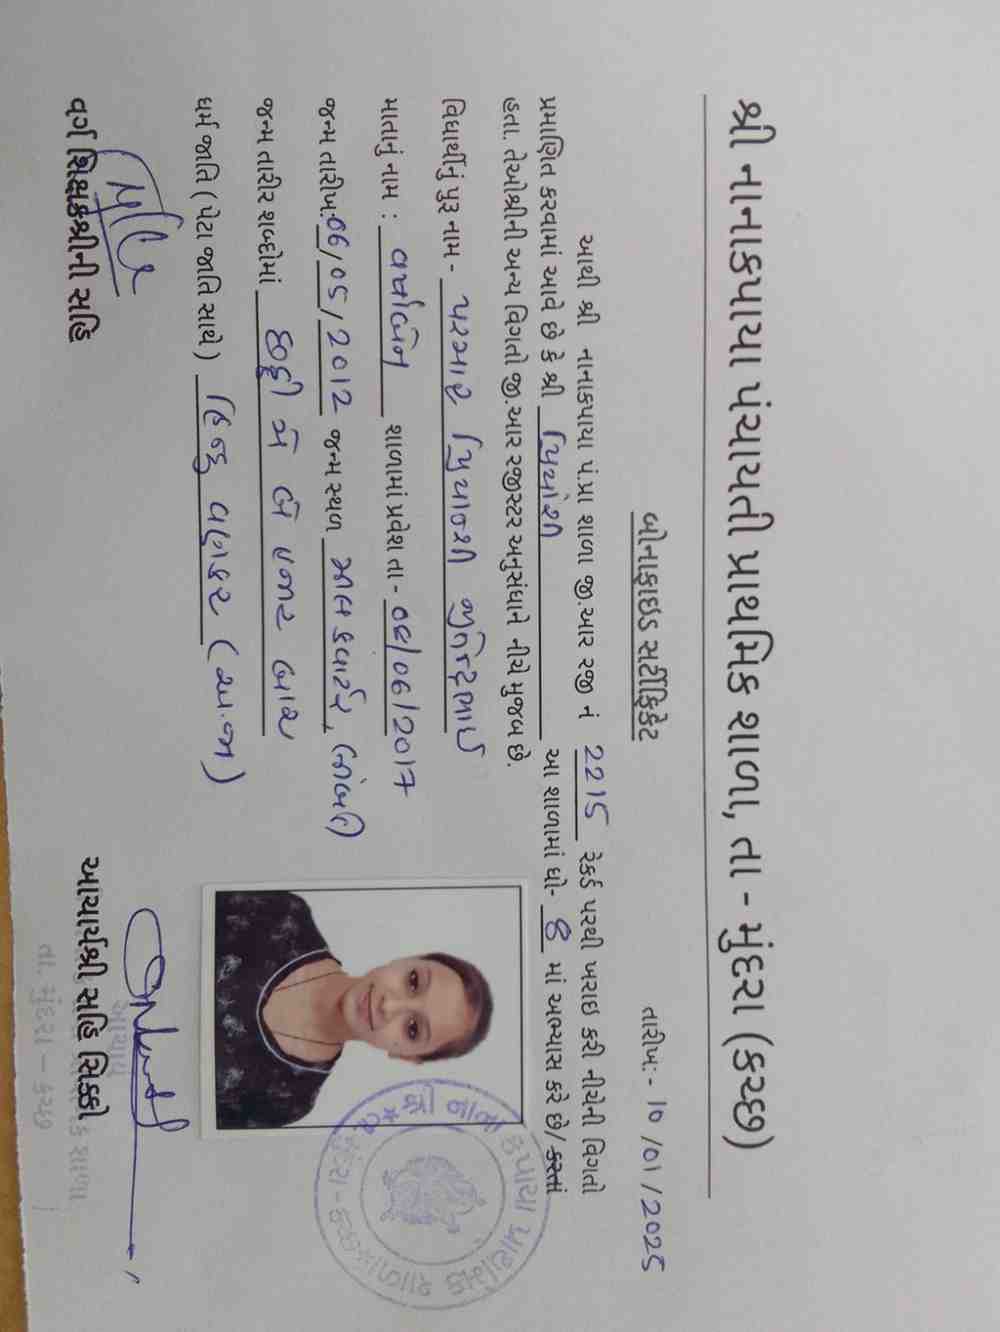 શ્રી નાનાકપાયા પંચાયતી પ્રાથમિક શાળા, તા - મુંદરા (કચ્છ)
તારીખ:- 10/01/2025
બોનાફાઇડ સર્ટીફિકેટ
આથી શ્રી નાનાકપાયા પં.પ્રા શાળા જી.આર રજી નં 2215 રેકર્ડ પરથી ખરાઇ કરી નીચેની વિગતો
પ્રમાણિત કરવામાં આવે છે કે શ્રી પ્રિયાંશી આ શાળામાં ધો- 8 માં અભ્યાસ કરે છે/ કરતાં
હતા. તેઓશ્રીની અન્ય વિગતો જી.આર રજીસ્ટર અનુસંધાને નીચે મુજબ છે.
વિદ્યાર્થીનું પુરૂ નામ - પરમાર પ્રિયાન્શી જીતેન્દ્રભાઈ
માતાનું નામ : વર્ષાબેન શાળામાં પ્રવેશ તા - 08/06/2017
જન્મ તારીખ: 06/05/2012 જન્મ સ્થળ
જન્મ તારીર શબ્દોમાં છઠ્ઠી મે બે હજાર બાર
ધર્મ જાતિ ( પેટા જાતિ સાથે ) હિન્દુ વણકર (અ.જા)
વર્ગ શિક્ષકશ્રીની સહિ
આચાર્યશ્રી સહિ સિક્કો
આચાર્ય
તા. મુંદરા - કચ્છ
નાના કપાયા પ્રાથમિક શાળા
મુંદરા - કચ્છ